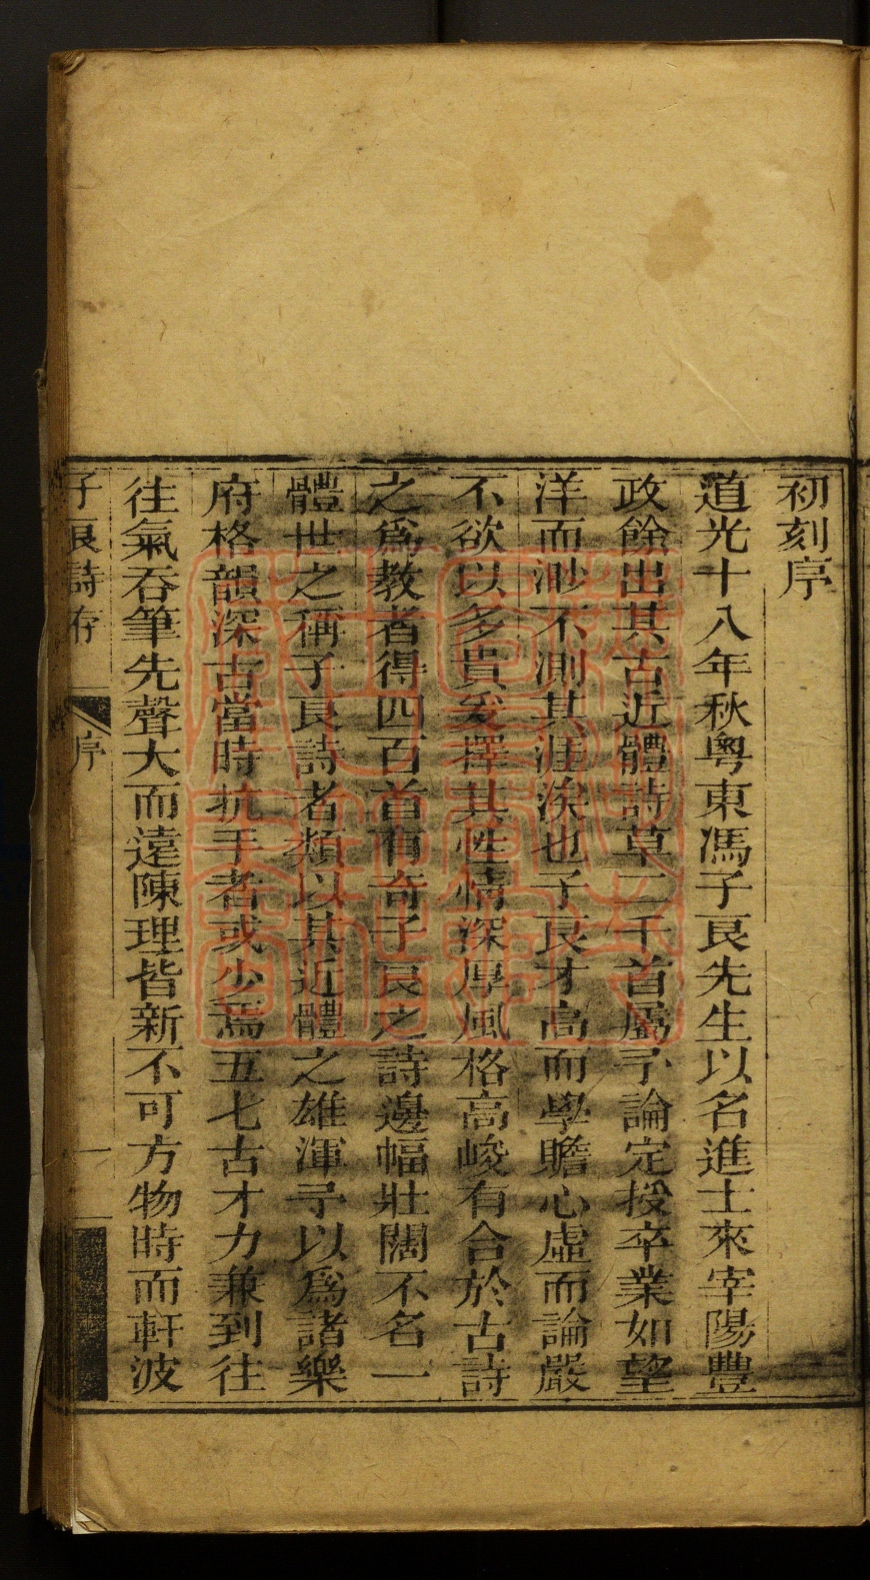 初刻序
道光十八年秋粵東馮子良先生以名進士來宰陽豐
政餘出其古近體詩草二千首屬予論定授卒業如望
洋而渺不測其涯涘也子良才高而學贍心虛而論嚴
不欲以多貴爰擇其性情深厚風格高峻有合於古詩
之為教者得四百首有奇子良之詩邊幅壯闊不名一
體世之稱子良詩者類以其近體之雄渾予以為諸樂
府格韻深古當時抗手者或少焉五七古才力兼到往
往氣吞筆先聲大而遠陳理皆新不可方物時而軒波
子良詩存
序
一